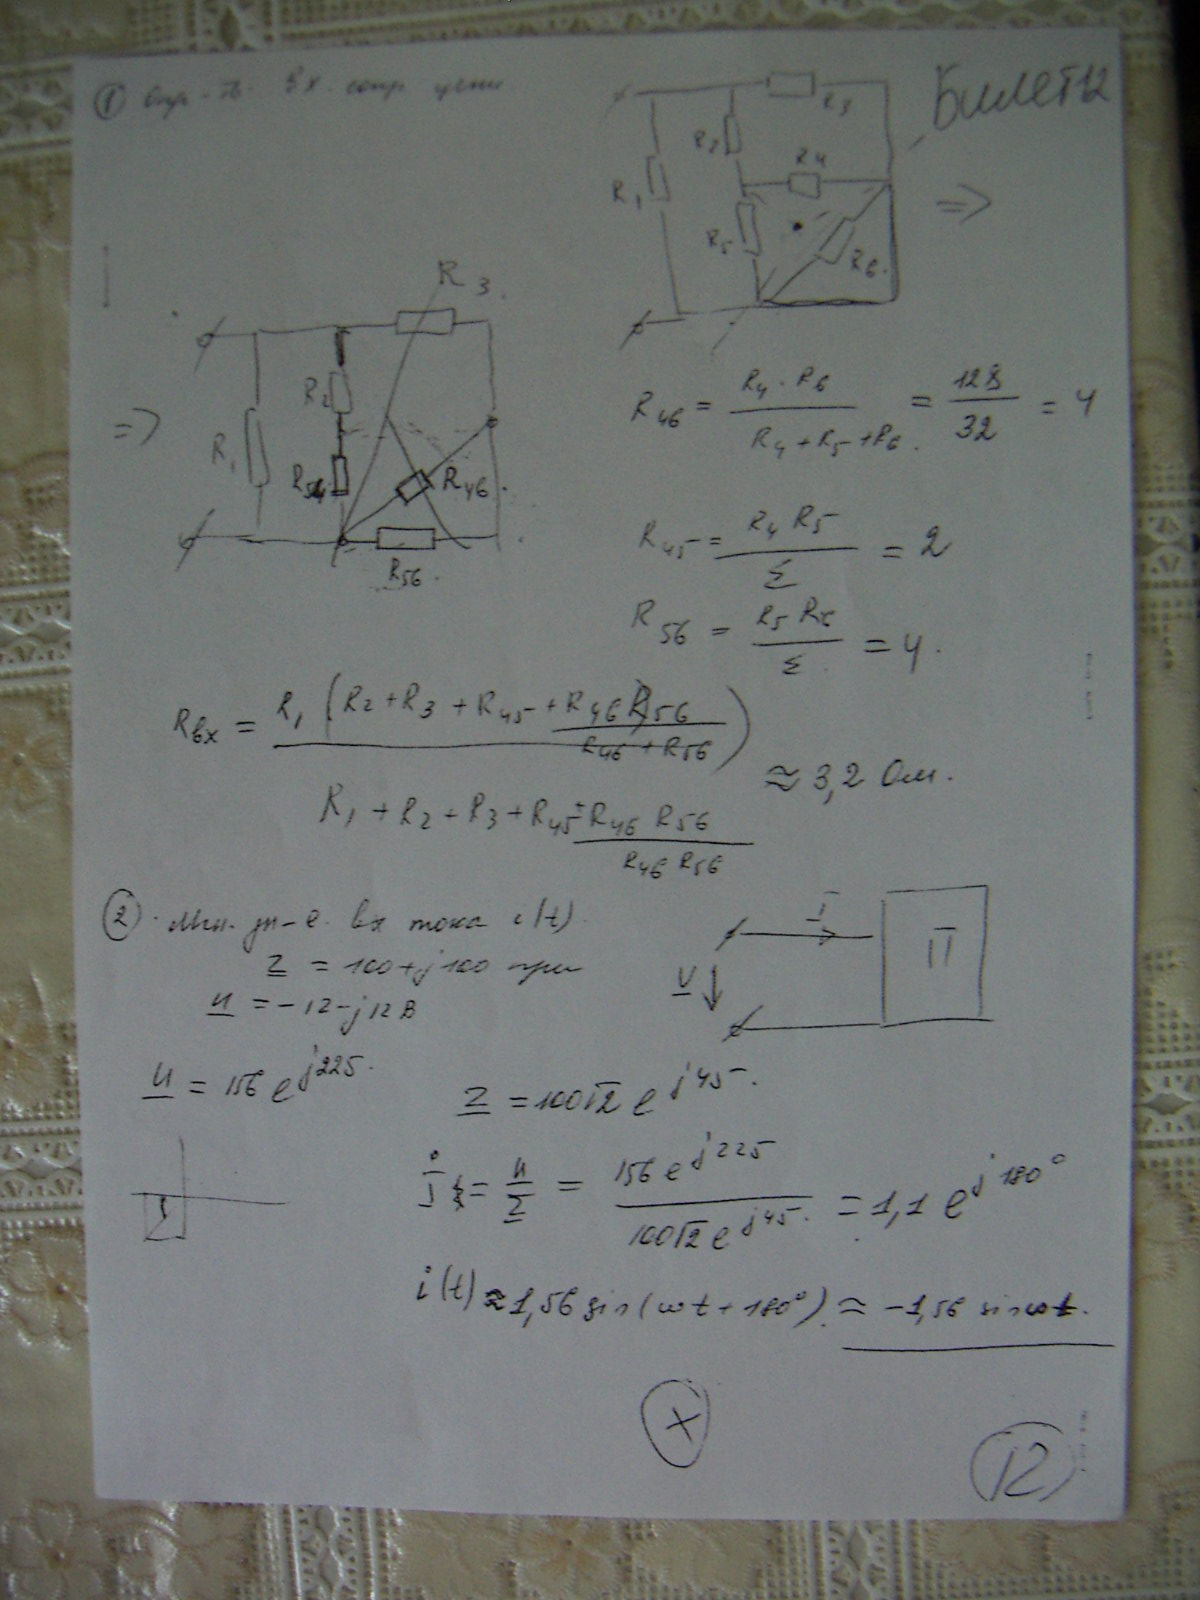 Билет 12
① Опр-ть вх. сопр цепи
R3
R2
R4
R1
R5
R6
=>
=>
R3
R2
R1
R54
R46
R56
R46 = R4 · R6 / R4 + R5 + R6 = 128 / 32 = 4
R45 = R4 R5 / Σ = 2
R56 = R5 R6 / Σ = 4
Rвх = R1 (R2 + R3 + R45 + R46 R56 / R46 + R56) / R1 + R2 + R3 + R45 + R46 R56 / R46 R56 ≈ 3,2 Ом.
② Мгн. зн-е вх тока i(t)
Z = 100 + j100 при
U = -12 - j12 В
I
U
П
U = 156 e^j225
Z = 100√2 e^j45
İ = U / Z = 156 e^j225 / 100√2 e^j45 = 1,1 e^j180°
i(t) ≈ 1,56 sin(ωt + 180°) ≈ -1,56 sin ωt.
X
12